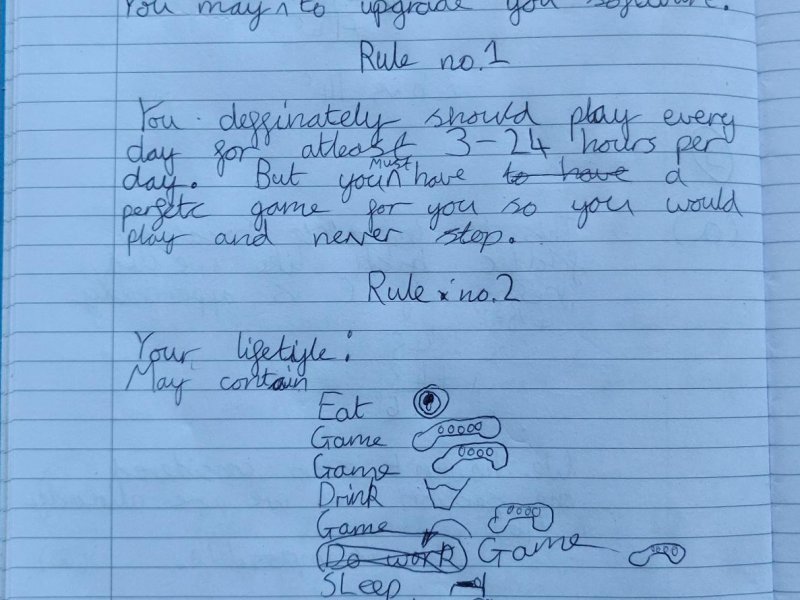 You may to upgrade you software.
Rule no.1
You deffinately should play every
day for atleast 3-24 hours per
day. But you must have to have a
perfetc game for you so you would
play and never stop.
Rule no.2
Your lifetiyle:
May contain
Eat
Game
Game
Drink
Game
Do work Game
Sleep